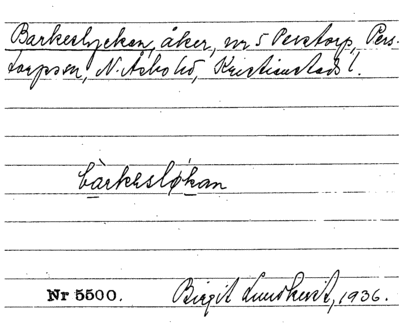 Barkeslyckan, åker, nr 5 Perstorp, Pers-
torps sn, N. Åsbo hd, Kristianstads l.
bàrkesløkan
Nr 5500. Birgit Lundkvist, 1936.